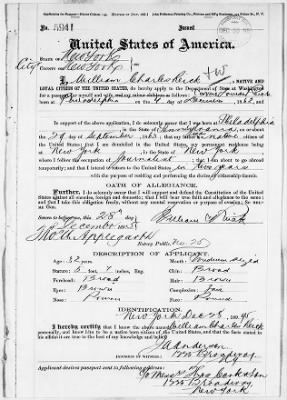 No.
Issued
United States of America.
STATE OF New York
COUNTY OF New York
I, William Charles Reick, A NATIVE AND
LOYAL CITIZEN OF THE UNITED STATES, do hereby apply to the Department of State at Washington
for a passport for myself and wife,
Philadelphia
in the State of Pennsylvania, on or about the
29 day of September, 1863; that my father is a native
citizen of the United States; that I am domiciled in the United States, my permanent residence being
at New York, in the State of New York
where I follow the occupation of Journalist; that I am about to go abroad
temporarily; and that I intend to return to the United States
with the purpose of residing and performing the duties of citizenship therein.
OATH OF ALLEGIANCE.
Further, I do solemnly swear that I will support and defend the Constitution of the United States
against all enemies, foreign and domestic; that I will bear true faith and allegiance to the same; and
that I take this obligation freely, without any mental reservation or purpose of evasion: So help me God.
Sworn to before me, this 28th day
of December
Notary Public
DESCRIPTION OF APPLICANT.
Age: 32 years
Mouth: Medium sized
Stature: 5 feet, 7 inches, Eng.
Chin: Broad
Forehead: Broad
Hair: Brown
Eyes: Brown
Complexion: Fair
Nose: Roman
Face: Round
IDENTIFICATION.
New York Dec 28, 1895
I hereby certify that I know the above named William Charles Reick
personally, and know him to be a native born citizen of the United States, and that the facts stated in
his affidavit are true to the best of my knowledge and belief.
Applicant desires passport sent to following address:
Thos Cook & Son
Broadway
New York